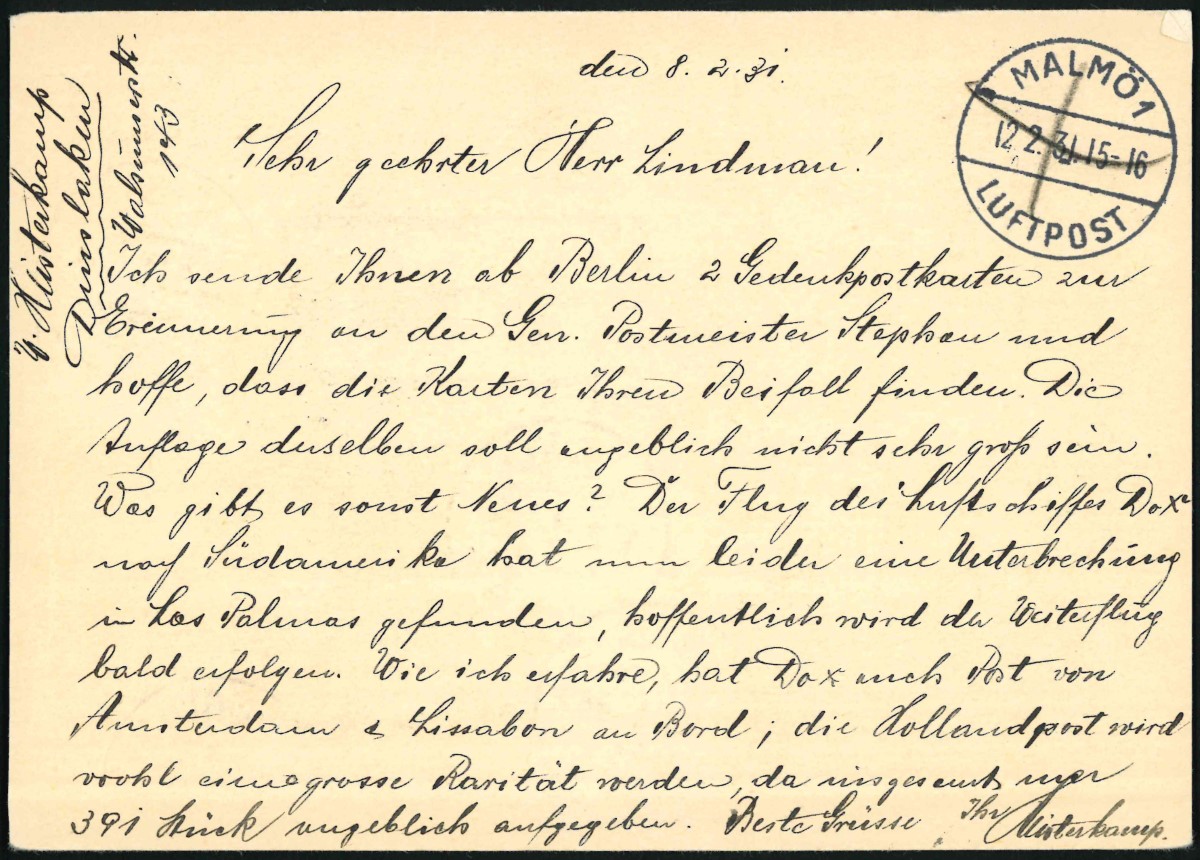 den 8. 2. 31.
MALMÖ 1
12. 2. 31. 15-16
LUFTPOST
Hüsterkamp
Dinslaken
Walsumerstr.
143
Sehr geehrter Herr Lindman!
Ich sende Ihnen ab Berlin 2 Gedenkpostkarten zur
Erinnerung an den Gen. Postmeister Stephan und
hoffe, dass die Karten Ihren Beifall finden. Die
Auflage derselben soll angeblich nicht sehr groß sein.
Was gibt es sonst Neues? Der Flug des Luftschiffes Dox
nach Südamerika hat nun leider eine Unterbrechung
in Las Palmas gefunden, hoffentlich wird der Weiterflug
bald erfolgen. Wie ich erfahre, hat Dox auch Post von
Amsterdam & Lissabon an Bord; die Hollandpost wird
wohl eine grosse Rarität werden, da insgesamt nur
391 Stück angeblich aufgegeben. Beste Grüsse Ihr Hüsterkamp.